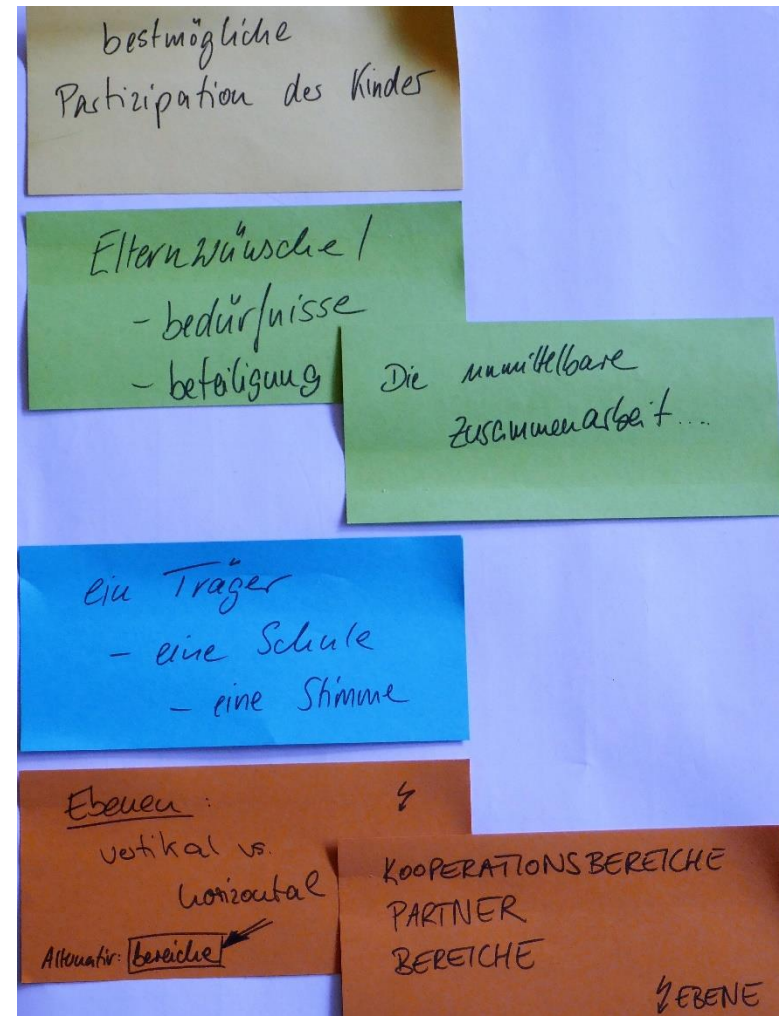 bestmögliche
Partizipation des Kinder
Elternwünsche /
- bedürfnisse
- beteiligung
Die unmittelbare
Zusammenarbeit....
ein Träger
- eine Schule
- eine Stimme
Ebenen :
vertikal vs.
horizontal
Alternativ: bereiche
KOOPERATIONSBEREICHE
PARTNER
BEREICHE
EBENE